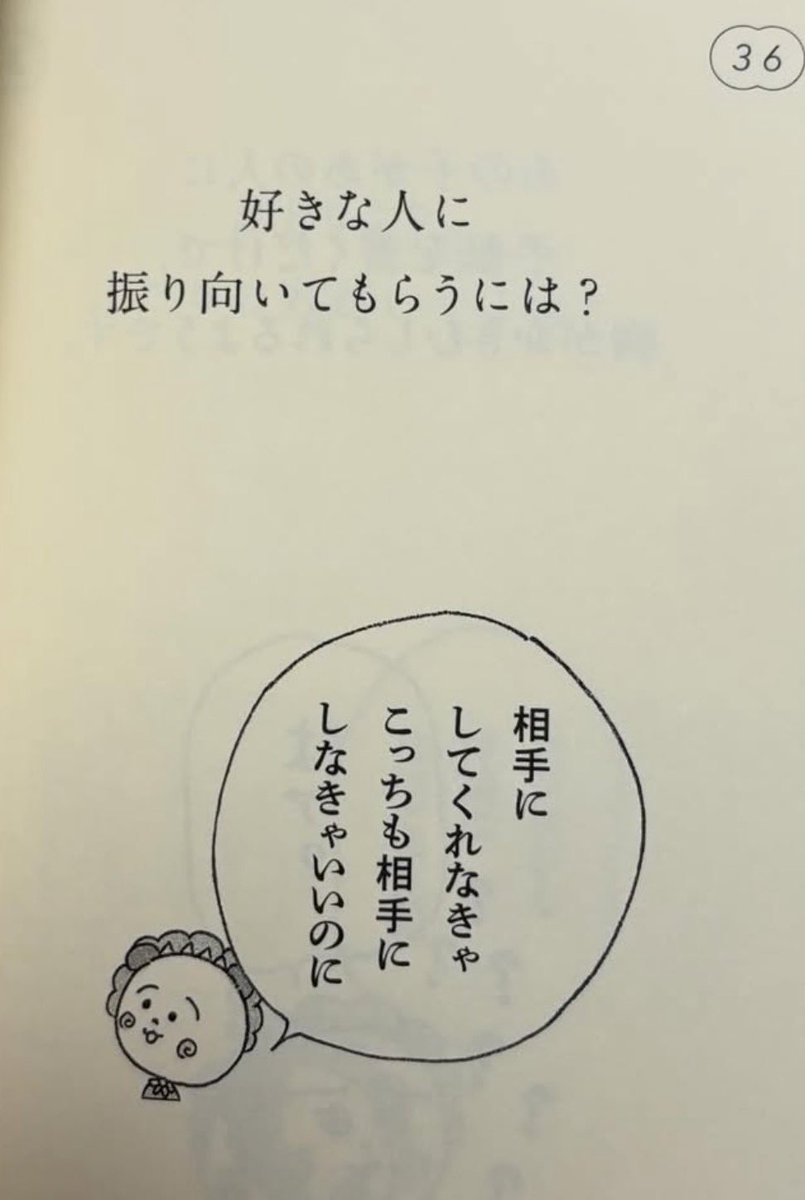 36
好きな人に
振り向いてもらうには？
相手に
してくれなきゃ
こっちも相手に
しなきゃいいのに